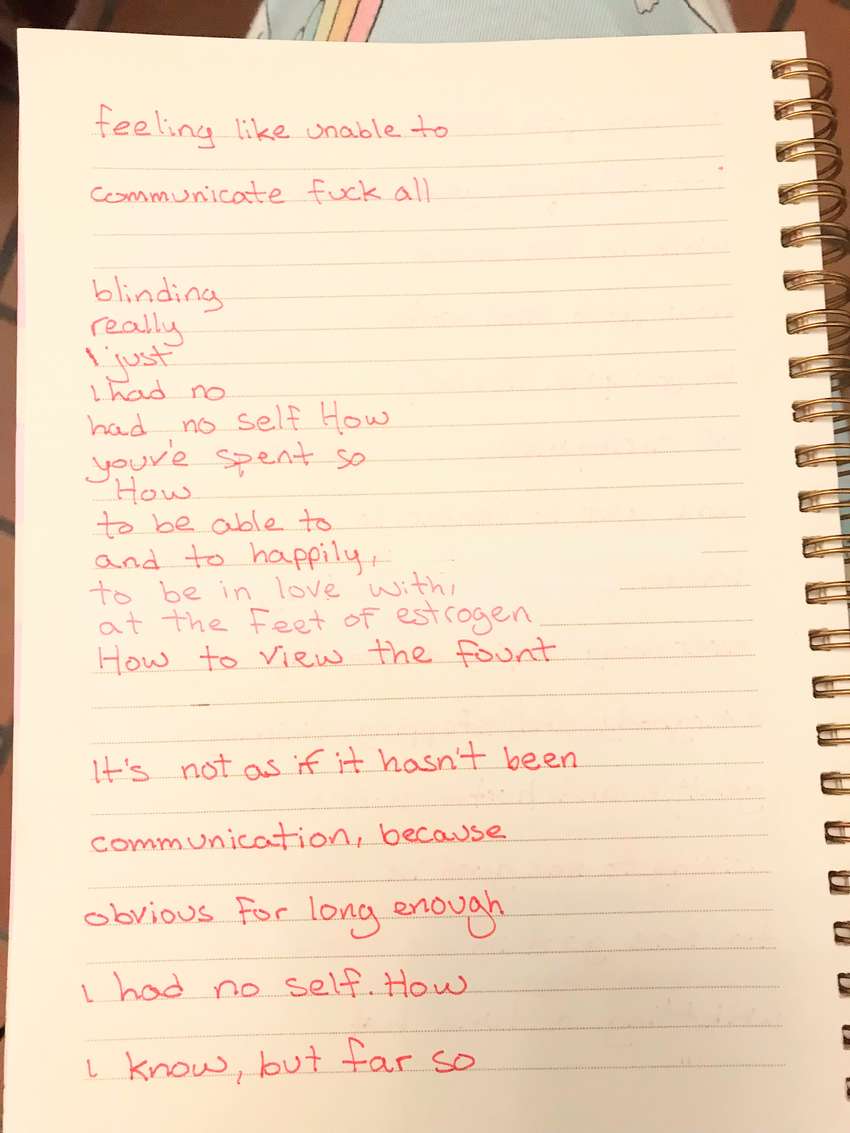 feeling like unable to
communicate fuck all
blinding
really
I just
I had no
had no self How
youv'e spent so
How
to be able to
and to happily,
to be in love with,
at the feet of estrogen
How to view the fount
It's not as if it hasn't been
communication, because
obvious for long enough
I had no self. How
I know, but far so